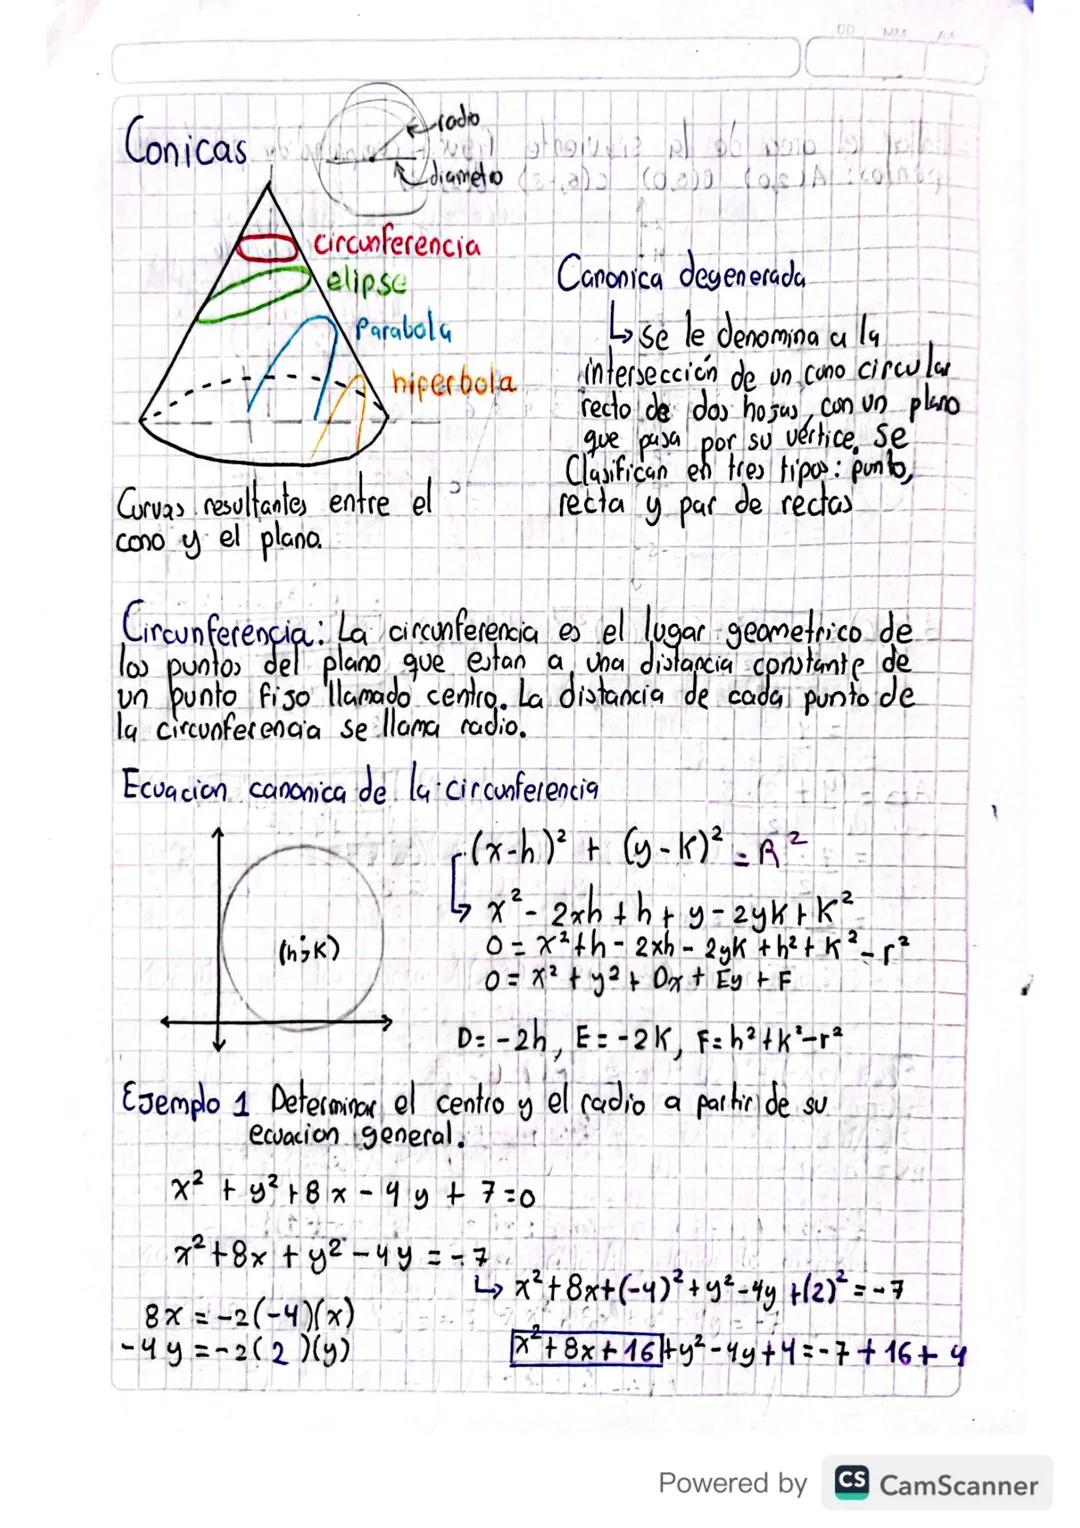 Conicas
radio
diametro
circunferencia
elipse
Parabola
hiperbola
Curvas resultantes entre el
cono y el plano.
Canonica degenerada
↳ se le denomina a la
intersección de un cono circular
recto de dos hojas, con un plano
que pasa por su vértice. Se
Clasifican en tres tipos: punto,
recta y par de rectas
Circunferencia: La circunferencia es el lugar geometrico de
los puntos del plano que estan a una distancia constante de
un punto fijo llamado centro. La distancia de cada punto de
la circunferencia se llama radio.
Ecuacion canonica de la circunferencia
(h;K)
(x-h)² + (y-K)² = R²
↳ x² - 2xh + h + y - 2yk + K²
0 = x² + h - 2xh - 2yK + h² + K² - r²
0 = x² + y² + Dx + Ey + F
D = -2h, E = -2K, F = h² + k² - r²
Ejemplo 1 Determinar el centro y el radio a partir de su
ecuacion general.
x² + y² + 8x - 4y + 7 = 0
x² + 8x + y² - 4y = -7
↳ x² + 8x + (-4)² + y² - 4y + (2)² = -7
8x = -2(-4)(x)
-4y = -2(2)(y)
x² + 8x + 16 + y² - 4y + 4 = -7 + 16 + 4
Powered by CS CamScanner